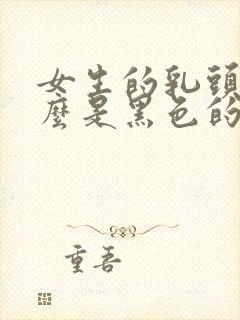 女生的乳頭
麼是黑色的
重吾